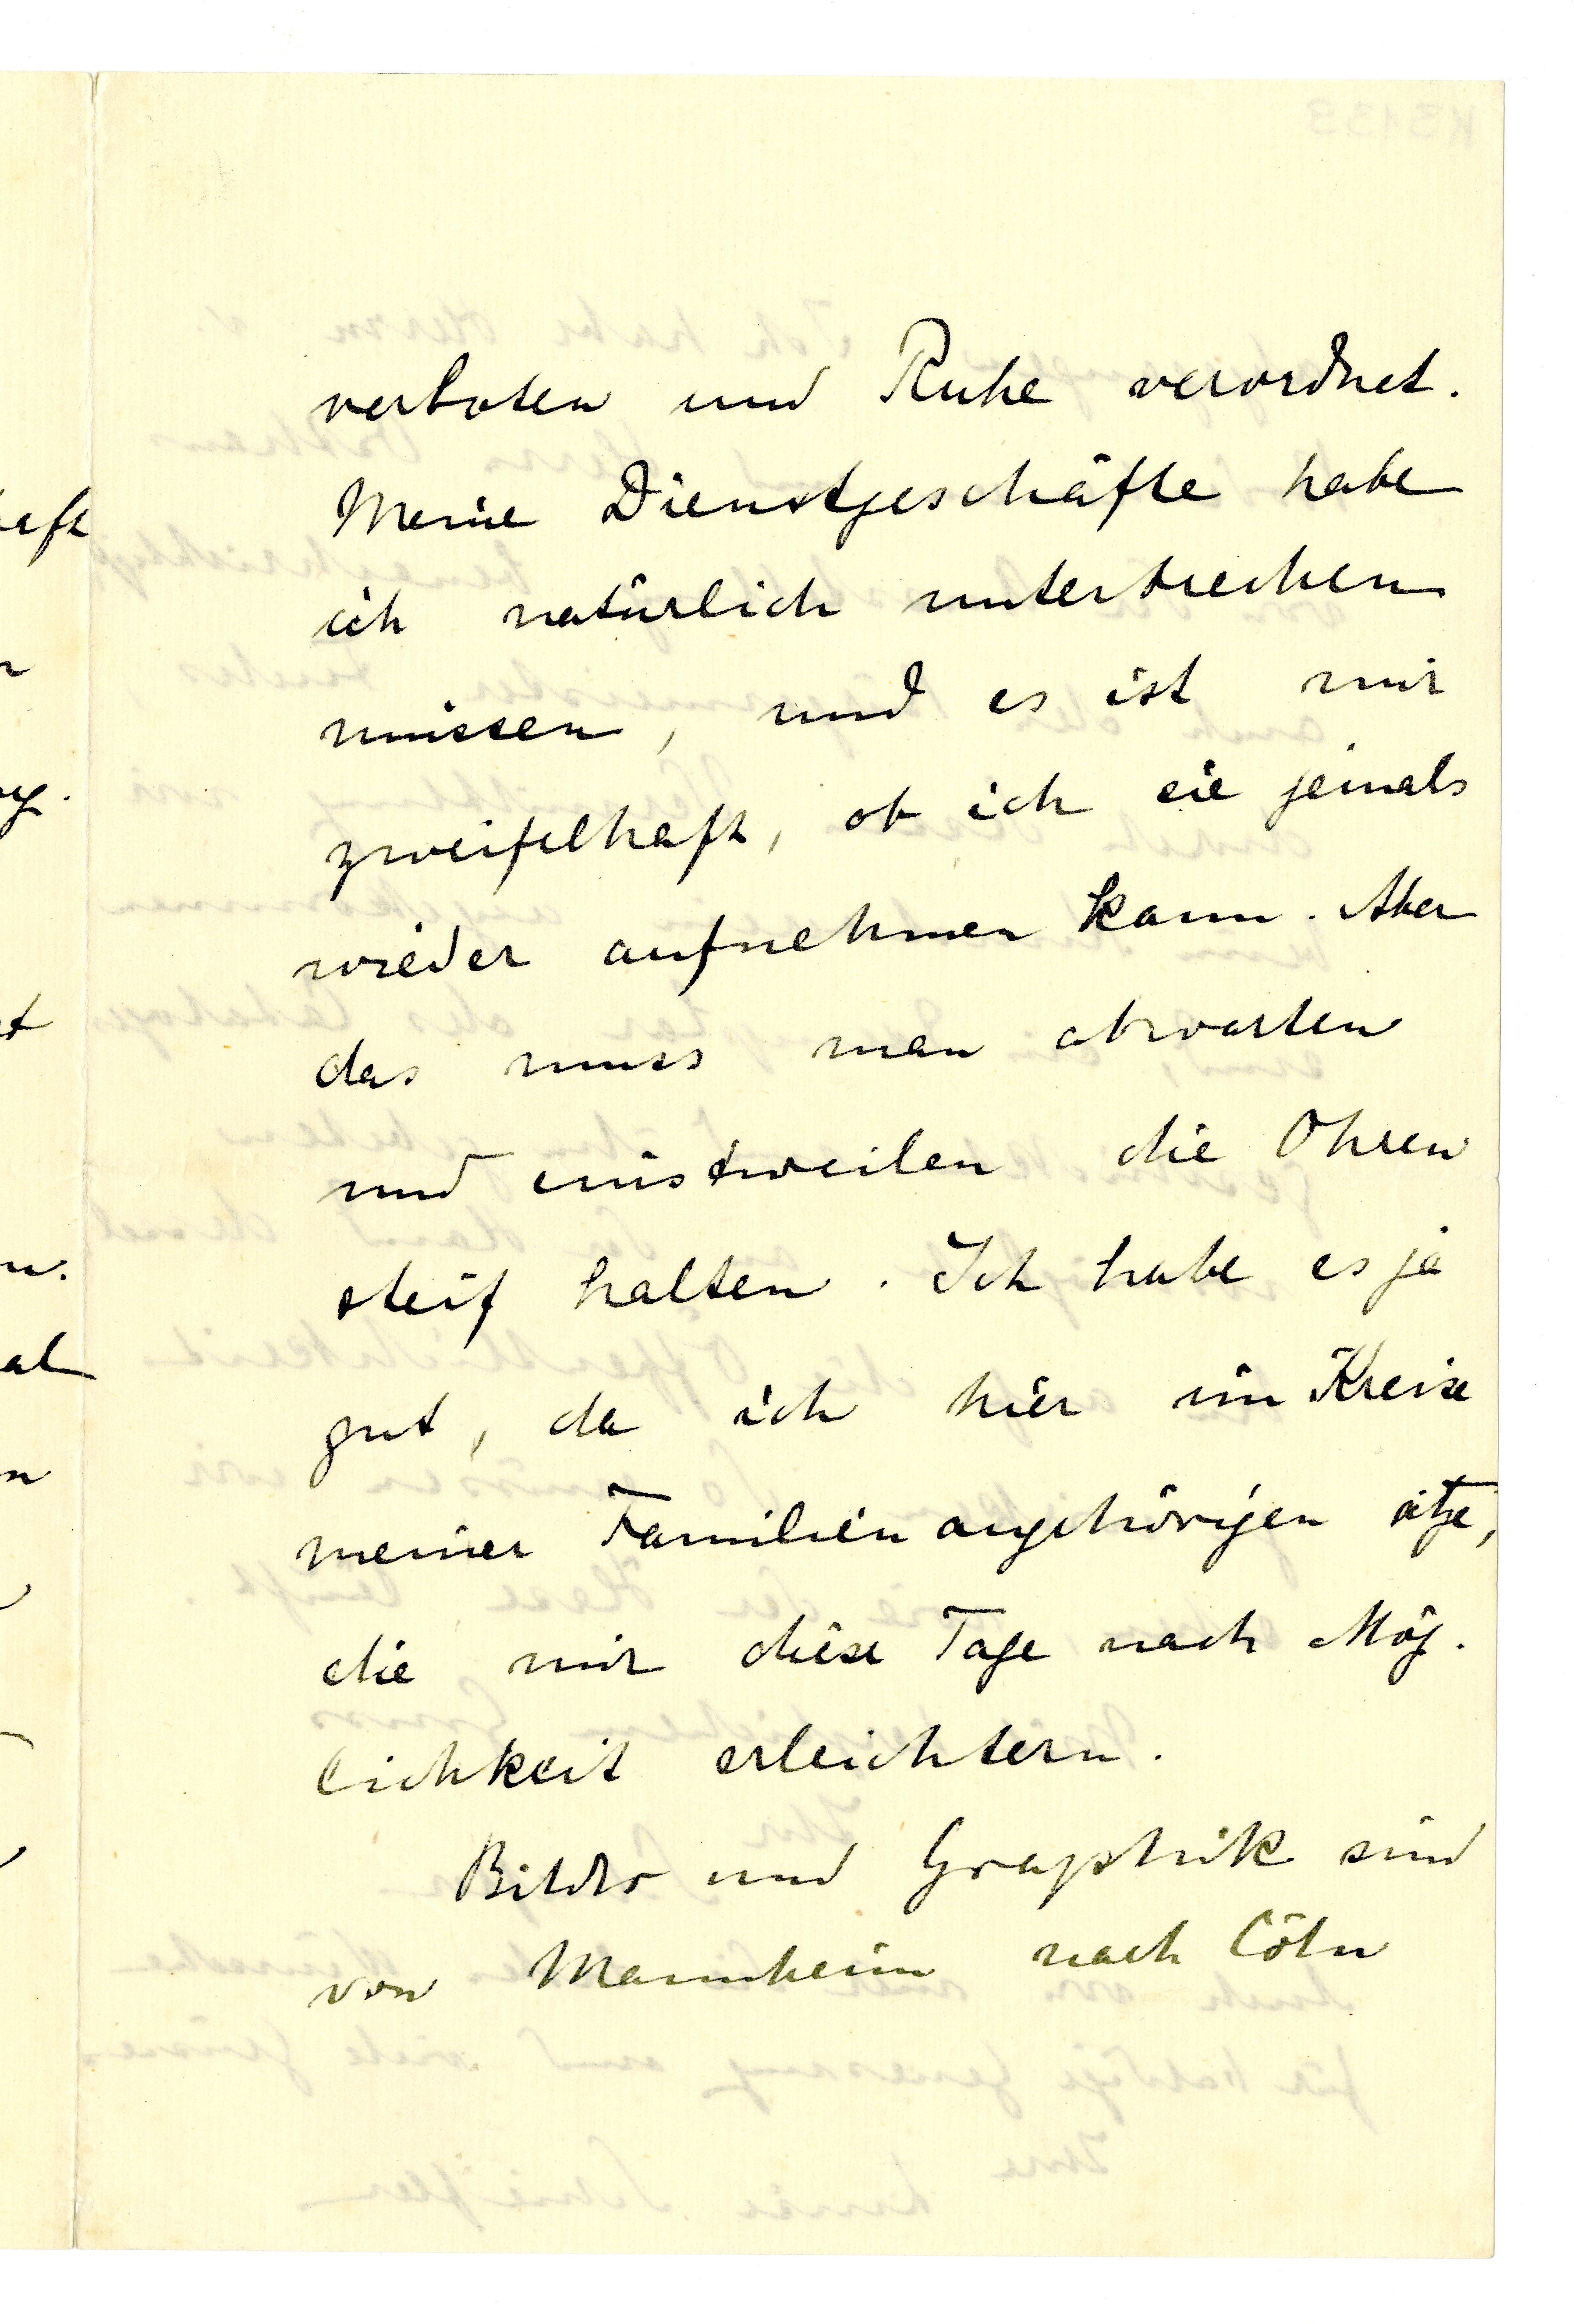 verboten und Ruhe verordnet.
Meine Dienstgeschäfte habe
ich natürlich unterbrechen
müssen, und es ist mir
zweifelhaft, ob ich sie jemals
wieder aufnehmen kann. Aber
das muss man abwarten
und einstweilen die Ohren
steif halten. Ich habe es ja
gut, da ich hier im Kreise
meiner Familienangehörigen sitze,
die mir diese Tage nach Mög-
lichkeit erleichtern.
Bilder und Graphik sind
von Mannheim nach Cöln